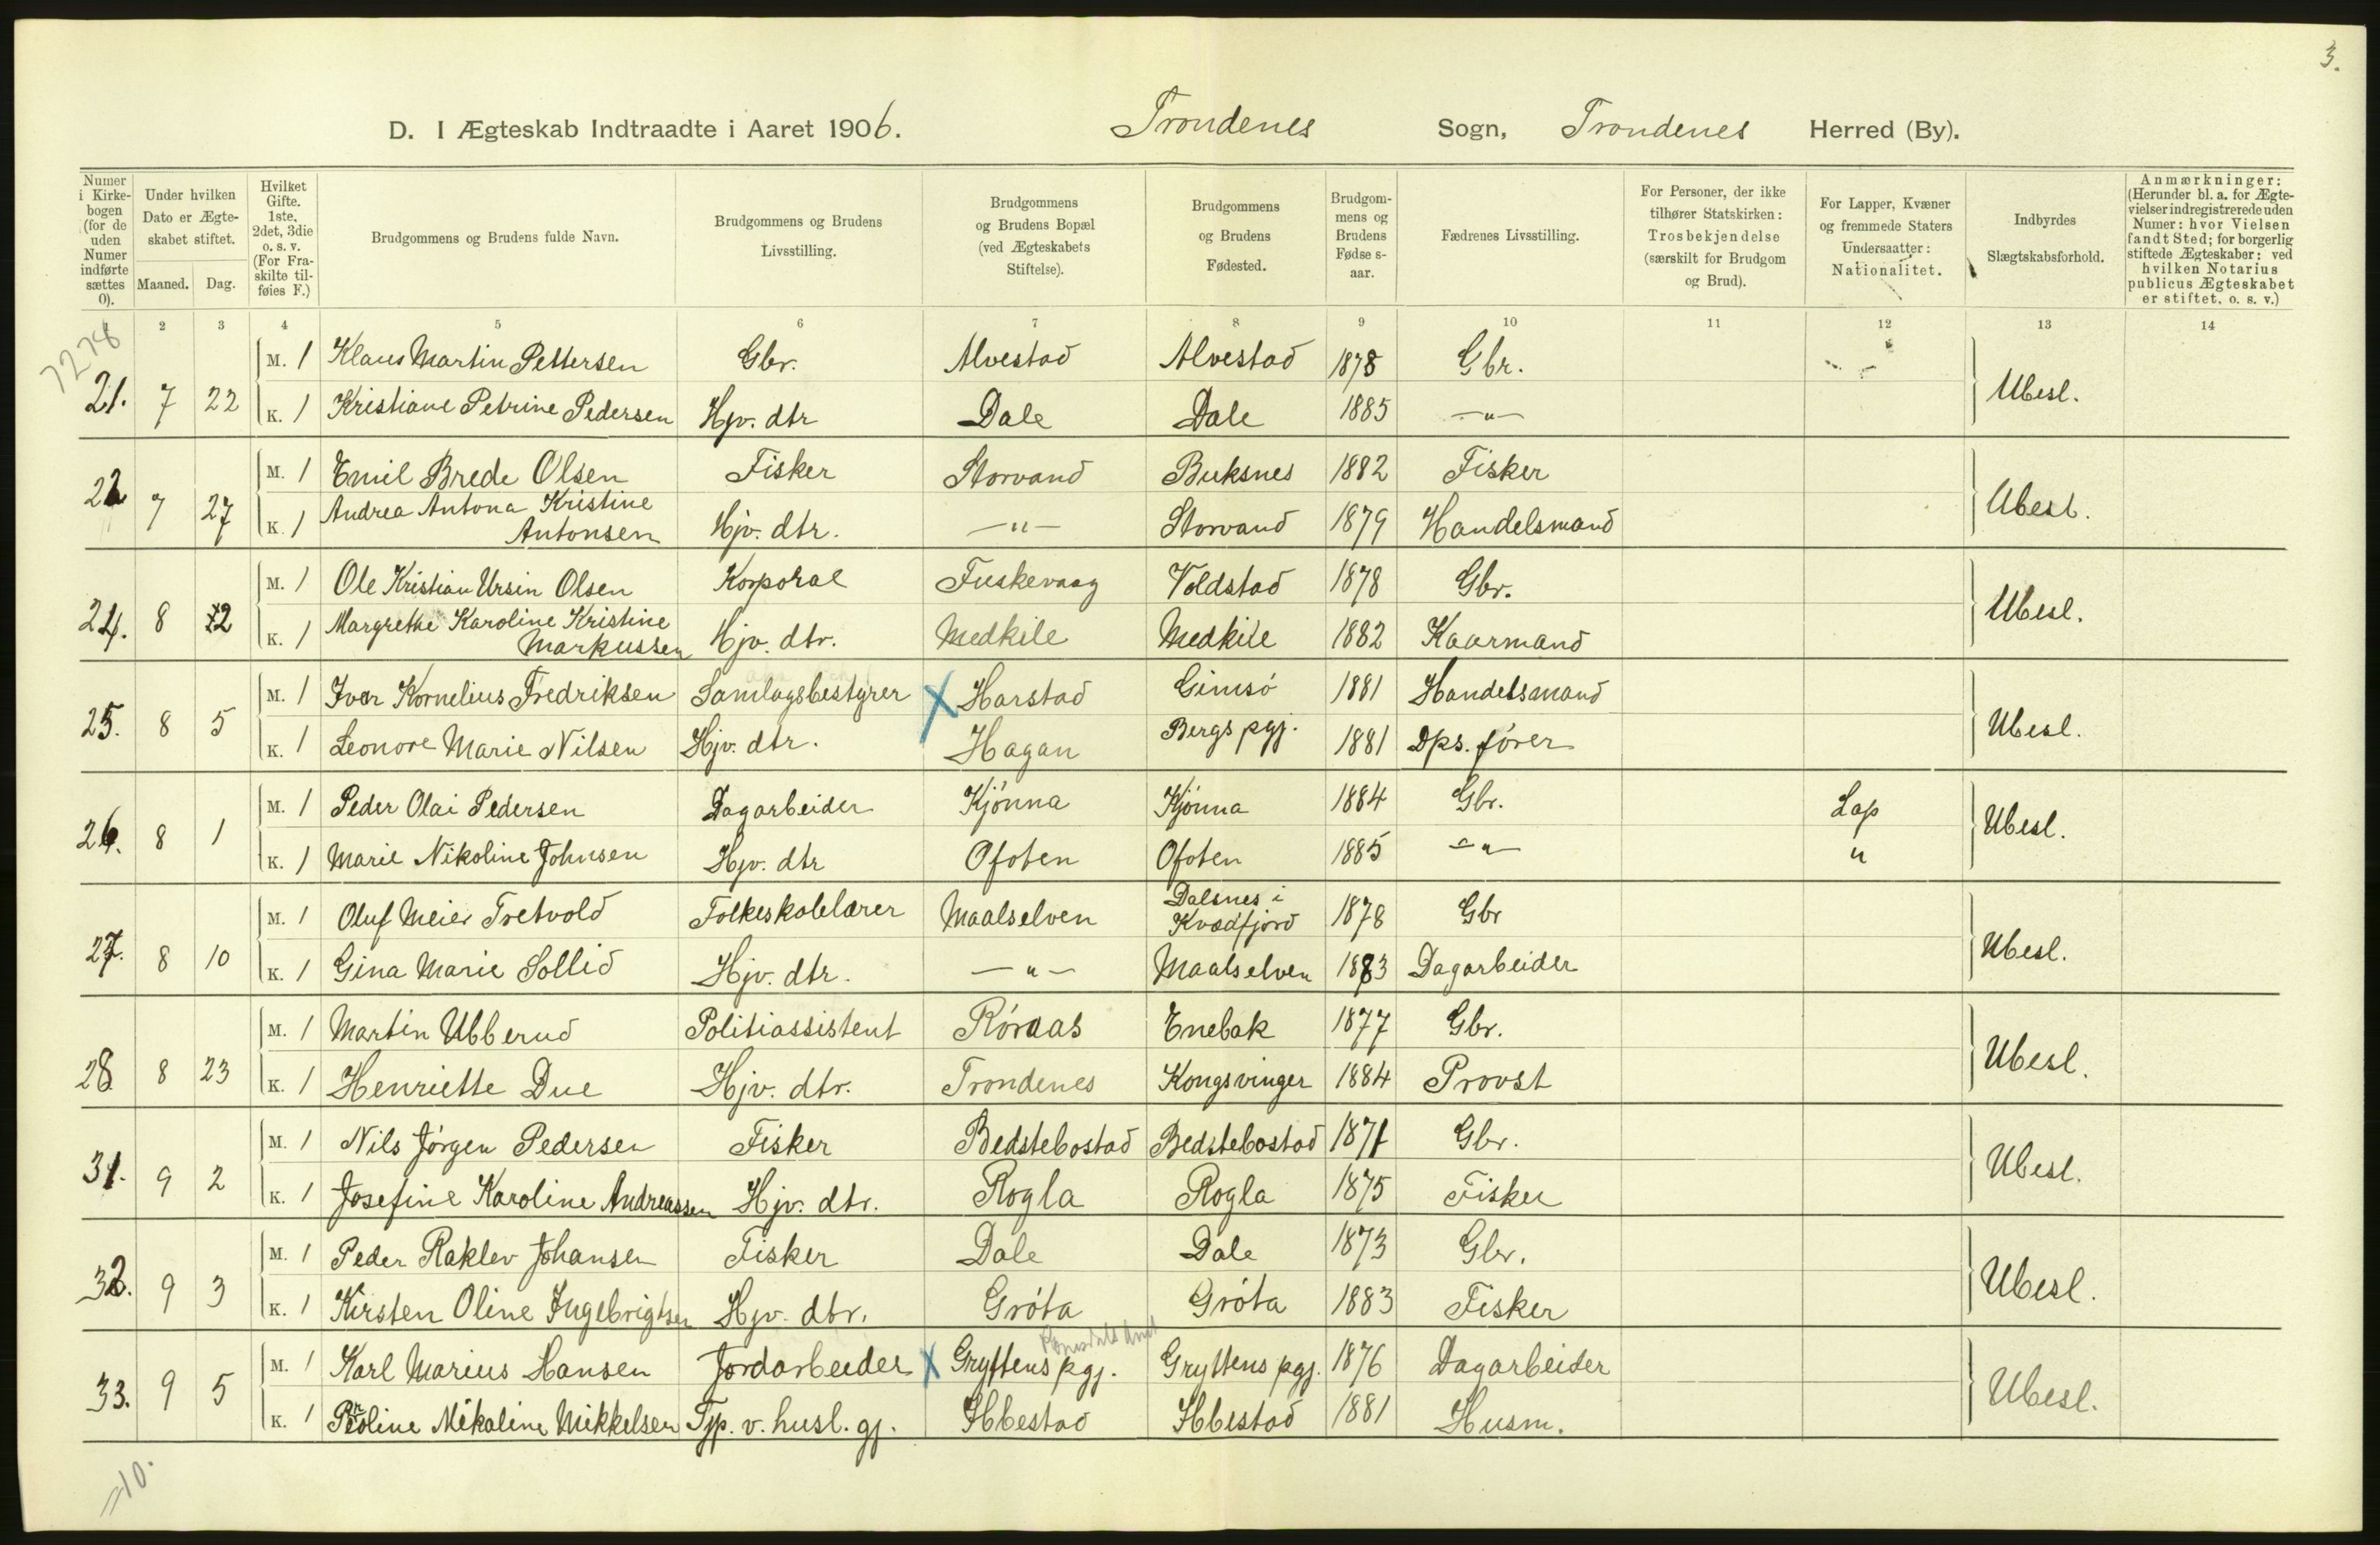 3.
D. I Ægteskab Indtraadte i Aaret 1906. Trondenes Sogn, Trondenes Herred (By).
Numer i Kirkebogen (for de uden Numer indførte sættes 0). Under hvilken Dato er Ægteskabet stiftet. Maaned. Dag. Hvilket Gifte. 1ste, 2det, 3die o. s. v. (For Fraskilte tilføies F.) Brudgommens og Brudens fulde Navn. Brudgommens og Brudens Livsstilling. Brudgommens og Brudens Bopæl (ved Ægteskabets Stiftelse). Brudgommens og Brudens Fødested. Brudgommens og Brudens Fødselsaar. Fædrenes Livsstilling. For Personer, der ikke tilhører Statskirken: Trosbekjendelse (særskilt for Brudgom og Brud). For Lapper, Kvæner og fremmede Staters Undersaatter: Nationalitet. Indbyrdes Slægtskabsforhold. Anmærkninger: (Herunder bl. a. for Ægtevielser indregistrerede uden Numer: hvor Vielsen fandt Sted; for borgerlig stiftede Ægteskaber: ved hvilken Notarius publicus Ægteskabet er stiftet. o. s. v.)
2 3 4 5 6 7 8 9 10 11 12 13 14
M. 1 Klaus Martin Pettersen Gbr. Alvestad Alvestad 1878 Gbr.
21. 7 22 K. 1 Kristiane Petrine Pedersen Hjv. dtr Dale Dale 1885 —"— Ubesl.
M. 1 Emil Brede Olsen Fisker Storvand Buksnes 1882 Fisker
22 7 27 K. 1 Andrea Antona Kristine
Antonsen Hjv. dtr. —"— Storvand 1879 Handelsmand Ubesl.
M. 1 Ole Kristian Ursin Olsen Korporal Fuskevaag Voldstad 1878 Gbr.
24. 8 2 K. 1 Margrethe Karoline Kristine
Markussen Hjv. dtr. Medkile Medkile 1882 Kaarmand Ubesl.
M. 1 Ivar Kornelius Fredriksen Samlagsbestyrer X Harstad Gimsø 1881 Handelsmand
25. 8 5 K. 1 Leonore Marie Nilsen Hjv. dtr. Hagan Bergs pgj. 1881 Dps. fører Ubesl.
M. 1 Peder Olai Pedersen Dagarbeider Kjønna Kjønna 1884 Gbr. Lap
26. 8 1 K. 1 Marie Nikoline Johnsen Hjv. dtr Ofoten Ofoten 1885 —"— " Ubesl.
M. 1 Oluf Meier Tretvold Folkeskolelærer Maalselven Dalsnes i
Kvædfjord 1878 Gbr
27. 8 10 K. 1 Gina Marie Sollid Hjv. dtr. —"— Maalselven 1883 Dagarbeider Ubesl.
M. 1 Martin Ubberud Politiassistent Røraas Enebak 1877 Gbr.
28 8 23 K. 1 Henriette Due Hjv. dtr. Trondenes Kongsvinger 1884 Provst Ubesl.
M. 1 Nils Jørgen Pedersen Fisker Bedstebostad Bedstebostad 1871 Gbr.
31. 9 2 K. 1 Josefine Karoline Andreassen Hjv. dtr. Rogla Rogla 1875 Fisker Ubesl.
M. 1 Peder Raklev Johansen Fisker Dale Dale 1873 Gbr.
32. 9 3 K. 1 Kirsten Oline Ingebrigtsen Hjv. dtr. Grøta Grøta 1883 Fisker Ubesl.
Romsdals Amt
M. 1 Karl Marius Hansen Jordarbeider X Gryttens pgj. Gryttens pgj. 1876 Dagarbeider
33. 9 5 K. 1 Mikaline Mikkelsen Tjp. v. husl. gj. Ibbestad Ibbestad 1881 Husm. Ubesl.
=10.